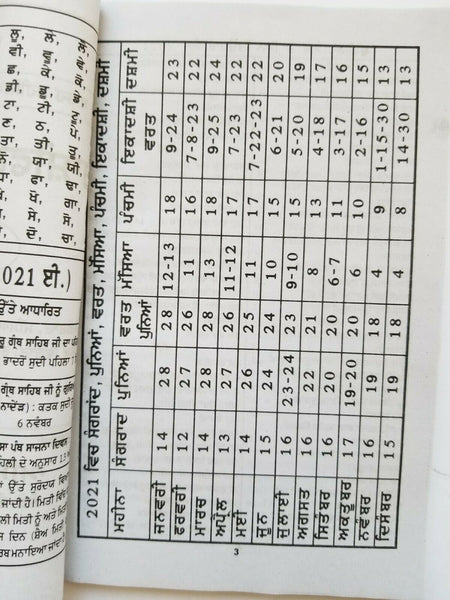 ਲੂ, ਲੇ, ਲੋ,
ਵੀ, ਵੂ,
ਛ, ਕੇ,
ਡੀ, ਡੂ,
ਟਾ, ਟੀ,
ਣ, ਠ,
ਤਾ, ਤੀ,
ਨੋ, ਯਾ, ਯੀ,
ਧਾ, ਫਾ, ਢਾ,
ਖੇ, ਖੋ, ਗਾ,
ਸੇ, ਸੋ,
ਦੋ, ਚਾ,
2021 ਈ.)
ਉੱਤੇ ਆਧਾਰਿਤ
ਗ੍ਰੰਥ ਸਾਹਿਬ ਜੀ ਦਾ
ਭਾਦਰੋਂ ਸੁਦੀ ਪਹਿਲਾ 7
ਗ੍ਰੰਥ ਸਾਹਿਬ ਜੀ ਨੂੰ
(ਨਾਦੇੜ) : ਕਤਕ ਸੁਦੀ
6 ਨਵੰਬਰ
ਪੰਥ ਸਾਜਨਾ ਦਿਵਸ
ਦੇ ਅਨੁਸਾਰ 13
ਉੱਤੇ ਸੂਰੋਦਯ
ਜਾਂਦੀ ਹੈ। ਮਿਤੀ ਵਿੱਚ
ਮਿਤੀ ਨੂੰ ਅਤੇ ਮਿਤੀ
ਦਿਨ (ਸ਼ੇਅ ਮਿਤੀ
ਮਨਾਇਆ ਜਾਂਦਾ
2021 ਵਿਚ ਸੰਗਰਾਂਦ, ਪੁੰਨਿਆਂ, ਵਰਤ, ਮੱਸਿਆ, ਪੰਚਮੀ, ਇਕਾਦਸ਼ੀ, ਦਸ਼ਮੀ
ਮਹੀਨਾ ਸੰਗਰਾਂਦ ਪੁੰਨਿਆਂ ਵਰਤ ਪੁੰਨਿਆਂ ਮੱਸਿਆ ਪੰਚਮੀ ਇਕਾਦਸ਼ੀ ਵਰਤ ਦਸ਼ਮੀ
ਜਨਵਰੀ 14 28 28 12-13 18 9-24 23
ਫਰਵਰੀ 12 27 26 11 16 7-8-23 22
ਮਾਰਚ 14 28 28 13 18 9-25 24
ਅਪ੍ਰੈਲ 13 27 26 11-12 17 7-23 22
ਮਈ 14 26 25 11 17 7-22-23 22
ਜੂਨ 15 24 24 10 15 6-21 20
ਜੁਲਾਈ 16 23-24 23 9-10 15 5-20 19
ਅਗਸਤ 16 22 21 8 13 4-18 17
ਸਿਤੰਬਰ 16 20 20 6-7 11 3-17 16
ਅਕਤੂਬਰ 17 19-20 20 6 10 2-16 15
ਨਵੰਬਰ 16 19 18 4 9 1-15-30 13
ਦਿਸੰਬਰ 15 19 18 4 8 14-30 13
3